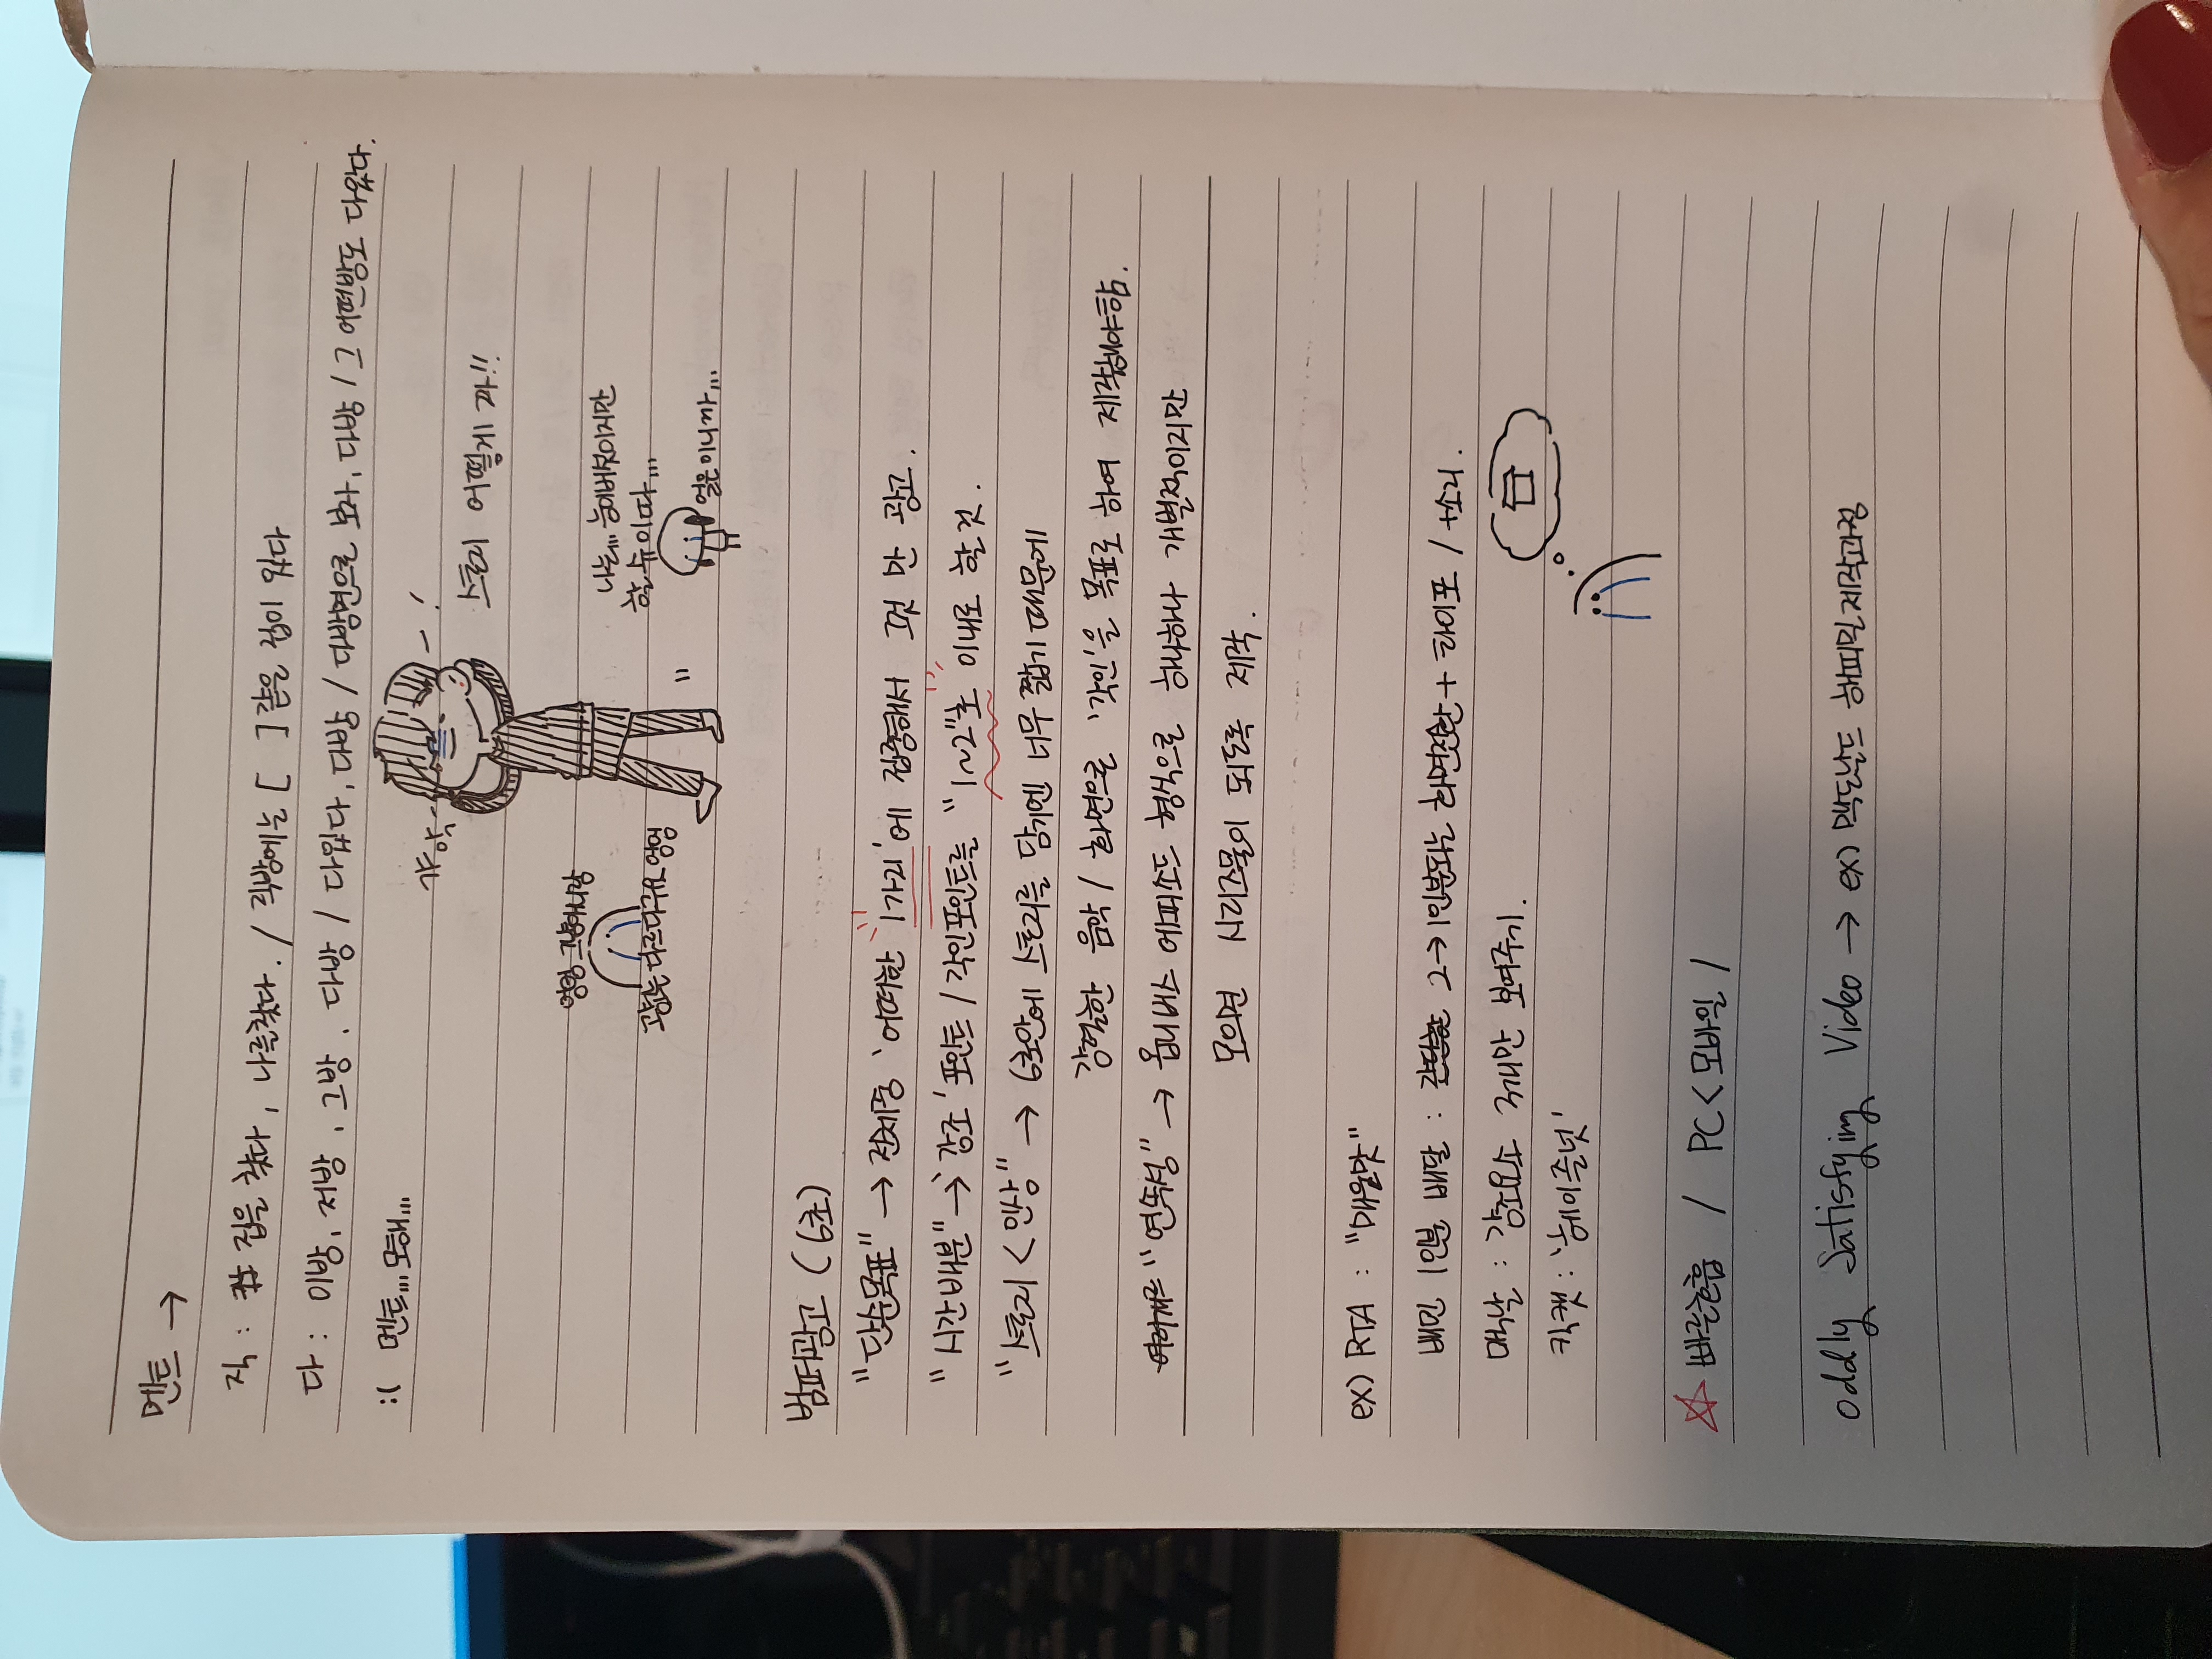 멘트 →
직 : 집을 찾다, 나를찾다. / 직방에는 [ ] 같은 집이 있다
다 : 이방, 저방, 그방, 다방 / 다있다, 다방 / 다방면으로 보자, 다방 / 그 어떤방도 다있다.
:( 멘트... 모해...
갸악 - !
스토리 어떻게 짜!!
엉엉 그냥애니랑
광고는 다르다구요 엉엉
나는... 능이버섯이지만
할 슈 이따...
얼은이니까...
범퍼광고 (6초)
"단순목표" → 전체중 '어떠한 1가지'에 집중해서 그것 만 광고.
"시간배분" → '강조' 포인트 / 각인포인트를 "1~2"초 이내로 할것.
"스토리 < 인상" → 6초안에 스토리를 담기엔 너무 짧기 때문에
강렬한 음악 / 화면으로 '각인'을 목표로 하여 제작해야함.
여러개로 "연속성" → 옴니버스 에피소드 형식으로 하나하나 개별적이지만
모으면 시리즈물이 되도록 제작.
ex) RTA : "매운맛"
배민 1인분 배달 : 간단한 2→1인분되는 화면전환 + 타이포 / +소리.
맥날 : 강조요소 3개만 보여주기.
킷캣 : '헤이즐넛'
☆ 빠른호흡 / PC < 모바일 /
oddly Satisfying Video → ex) 맥도날드 해피밀 제작과정